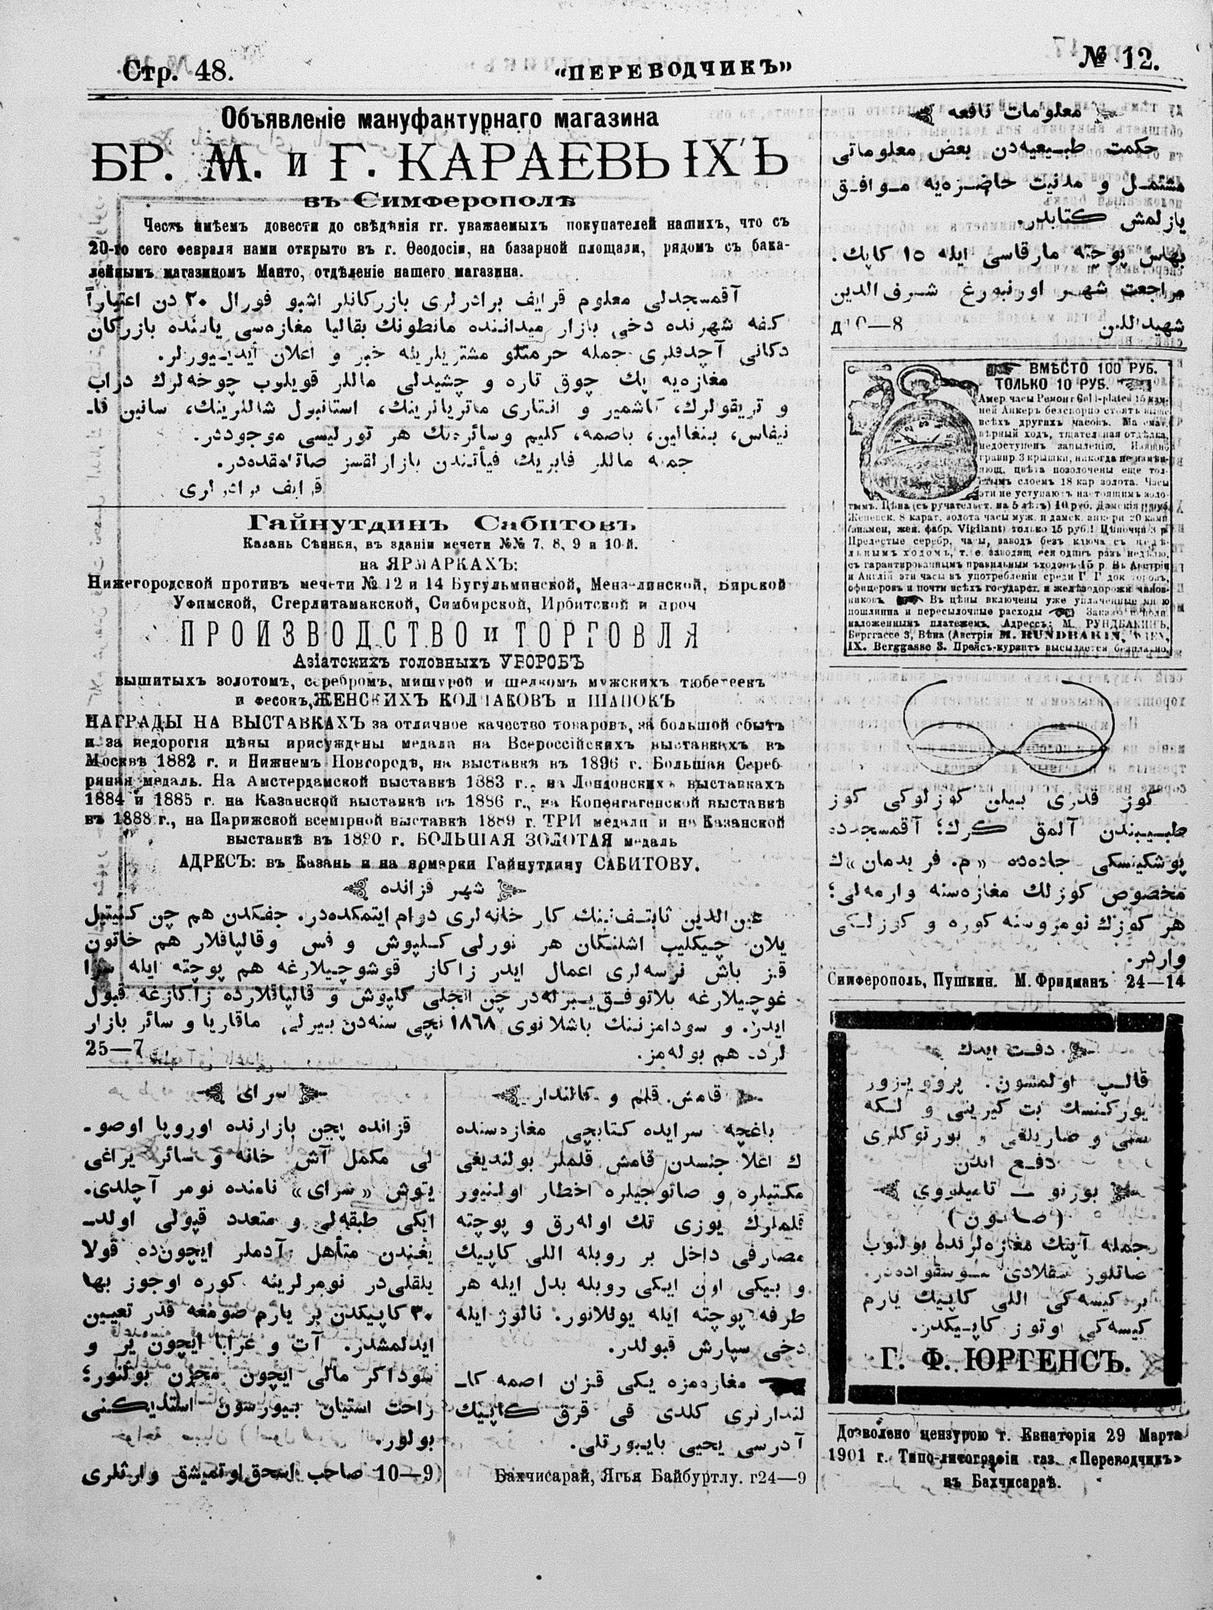 Стр. 48.
«ПЕРЕВОДЧИКЪ»
№ 12.
Объявленіе мануфактурнаго магазина
БР. М. и Г. КАРАЕВЫХЪ
въ Симферополѣ
Честь имѣемъ довести до свѣдѣнія гг. уважаемыхъ покупателей нашихъ, что съ
20-го сего февраля нами открыто въ г. Ѳеодосіи, на базарной площади, рядомъ съ бака-
лейнымъ магазиномъ Манто, отдѣленіе нашего магазина.
آقمسجدلی معلوم قرایف برادرلری بازرکانلر اشبو فورال ٢٠ دن اعتباراً
کفه شهرنده دخی بازار میداننده مانطونك بقالیا مغازەسی یاننده بازرکان
دکانی آچدقلری جمله حرمتلو مشتریلرینه خبر و اعلان ایدییورلر.
مغازەیه پك چوق تازه و چشیدلی ماللر قویلوب چوخەلرك دراپ
و تریقولرك، کاشمیر و انتاری ماتریالرینك، استانبول شاللرینك، ساتین فا-
نیفاس، بنغالین، باصمه، کلیم وسائرەنك هر تورلیسی موجوددر.
جمله ماللر فابریك فیأتندن بازارلقسز صاتلمقدەدر.
قرایف برادرلری
Гайнутдинъ Сабитовъ
Казань Сѣнная, въ зданіи мечети №№ 7, 8, 9 и 10-й.
на ЯРМАРКАХЪ:
Нижегородской противъ мечети № 12 и 14 Бугульминской, Мензелинской, Бирской
Уфимской, Стерлитамакской, Симбирской, Ирбитской и проч
ПРОИЗВОДСТВО и ТОРГОВЛЯ
Азіатскихъ головныхъ УБОРОВЪ
вышитыхъ золотомъ, серебромъ, мишурой и шелкомъ мужскихъ тюбетеекъ
и фесокъ, ЖЕНСКИХЪ КОЛПАКОВЪ и ШАПОКЪ
НАГРАДЫ НА ВЫСТАВКАХЪ за отличное качество товаровъ, за большой сбытъ
и за недорогія цѣны присуждены медали на Всероссійскихъ выставкахъ въ
Москвѣ 1882 г. и Нижнемъ Новгородѣ, на выставкѣ въ 1896 г. Большая Сереб-
ряная медаль. На Амстердамской выставкѣ 1883 г., на Лондонскихъ выставкахъ
1884 и 1885 г. на Казанской выставкѣ въ 1886 г., на Копенгагенской выставкѣ
въ 1888 г., на Парижской всемірной выставкѣ 1889 г. ТРИ медали и на Казанской
выставкѣ въ 1890 г. БОЛЬШАЯ ЗОЛОТАЯ медаль
АДРЕСЪ: въ Казань и на ярмарки Гайнутдину САБИТОВУ.
شهر قزانده
یلان چیکلیب اشلنکان هر تورلی کلپوش و فس وقالپاقلار هم خاتون
قز باش نرسەلری اعمال ایدر زاکاز قوشوچیلارغه هم پوچته ایله
ایدر. و سودامزنك باشلانوی ١٨٦٨ نچی سنەدن بیرلی ماقاریا و سائر بازار
لرده هم بولەمز.
25—7
سرای
قزانده پچن بازارنده اوروپا اوصو-
لی مکمل آش خانه و سائر یراغی
یتوش «سرای» نامنده نومر آچلدی.
ایکی طبقەلی و متعدد قپولی اولد-
یغندن متأهل آدملر ایچونده قولا
یلقلیدر نومرلرینه کوره اوجوز بها
٣٠ کاپیکدن بر یارم صومغه قدر تعیین
ایدلمشدر. آت و عرابا ایچون یر و
سوداکر مالی ایچون مخزن بولنور؛
راحت استیان بیورسون استدیکنی
بولور.
10—9) صاحب اسحق اوتمیشق وارثلری
قامش قلم و کالندار
باغچه سرایده کتابچی مغازەسنده
ك اعلا جنسدن قامش قلملر بولندیغی
مکتبلره و صاتوجیلره اخطار اولنیور
قلملرك یوزی تك اولەرق و پوچته
مصارفی داخل بر روبله اللی کاپیك
و بیکی اون ایکی روبله بدل ایله هر
طرفه پوچته ایله یوللانور. نالوژ ایله
دخی سپارش قبولدر.
مغازەمزه یکی قزان اصمه کا-
لندارلری کلدی فی قرق کاپیك
آدرسی یحیی بایبورتلی.
Бахчисарай, Ягъя Байбуртлу. г24—9
معلومات نافعه
حکمت طبیعیەدن بعض معلوماتی
مشتمل و مدنیت حاضرەیه موافق
یازلمش کتابدر.
بهاس پوچته مارقاسی ایله ١٥ کاپك.
مراجعت شهر اورنبورغ شرف الدین
شهیداللین
д10—8
ВМѢСТО 100 РУБ.
ТОЛЬКО 10 РУБ.
гравир 3 крышки, никогда не измѣн-
яющ. цвѣта позолочены еще тол-
стымъ слоемъ 18 кар золота. Часы
эти не уступаютъ настоящимъ золо-
тымъ. Цѣна (съ ручательст. на 5 лѣтъ) 10 руб. Дамскія 11 руб.
съ гарантированнымъ правильнымъ ходомъ 15 р. Въ Австріи
и Англіи эти часы въ употребленіи среди Г. Г. докторовъ,
офицеровъ и почти всѣхъ государст. и желѣзодорожн чинов-
никовъ. Въ цѣны включены уже уплаченныя мною
пошлина и пересылочные расходы
наложеннымъ платежемъ. Адресъ: М. РУНДБАКИНЪ,
Берггассе 3, Вѣна (Австрія M. RUNDBAKIN, WIEN,
IX. Berggasse 3. Прейсъ-курантъ высылается безплатно.
کوز قدری بیلن کوزلوکی کوز
طبیبندن آلمق کرك؛ آقمسجدده
پوشکینسکی جادەده «م. فریدمان»ك
مخصوص کوزلك مغازەسنه وارمەلی؛
هر کوزك نومروسنه کوره و کوزلکی
واردر.
Симферополь, Пушкин. М. Фридманъ 24—14
دقت ایدك
قالپ اولمسون. پروویزور
یورکنسك بت کیرینی و لکه
سنی و صاریلغی و بورتوکلری
دفع ایدن
بورنو — تامیلووی
(صابون)
جمله آپتك مغازەلرنده بولنوب
صاتلور سقلادی موسقوادەدر.
بر کیسەکی اللی کاپیك یارم
کیسەکی اوتوز کاپیکدر.
Г. Ф. ЮРГЕНСЪ.
Дозволено цензурою г. Евпаторія 29 Марта
1901 г. Типо-литографія газ. «Переводчикъ»
въ Бахчисараѣ.